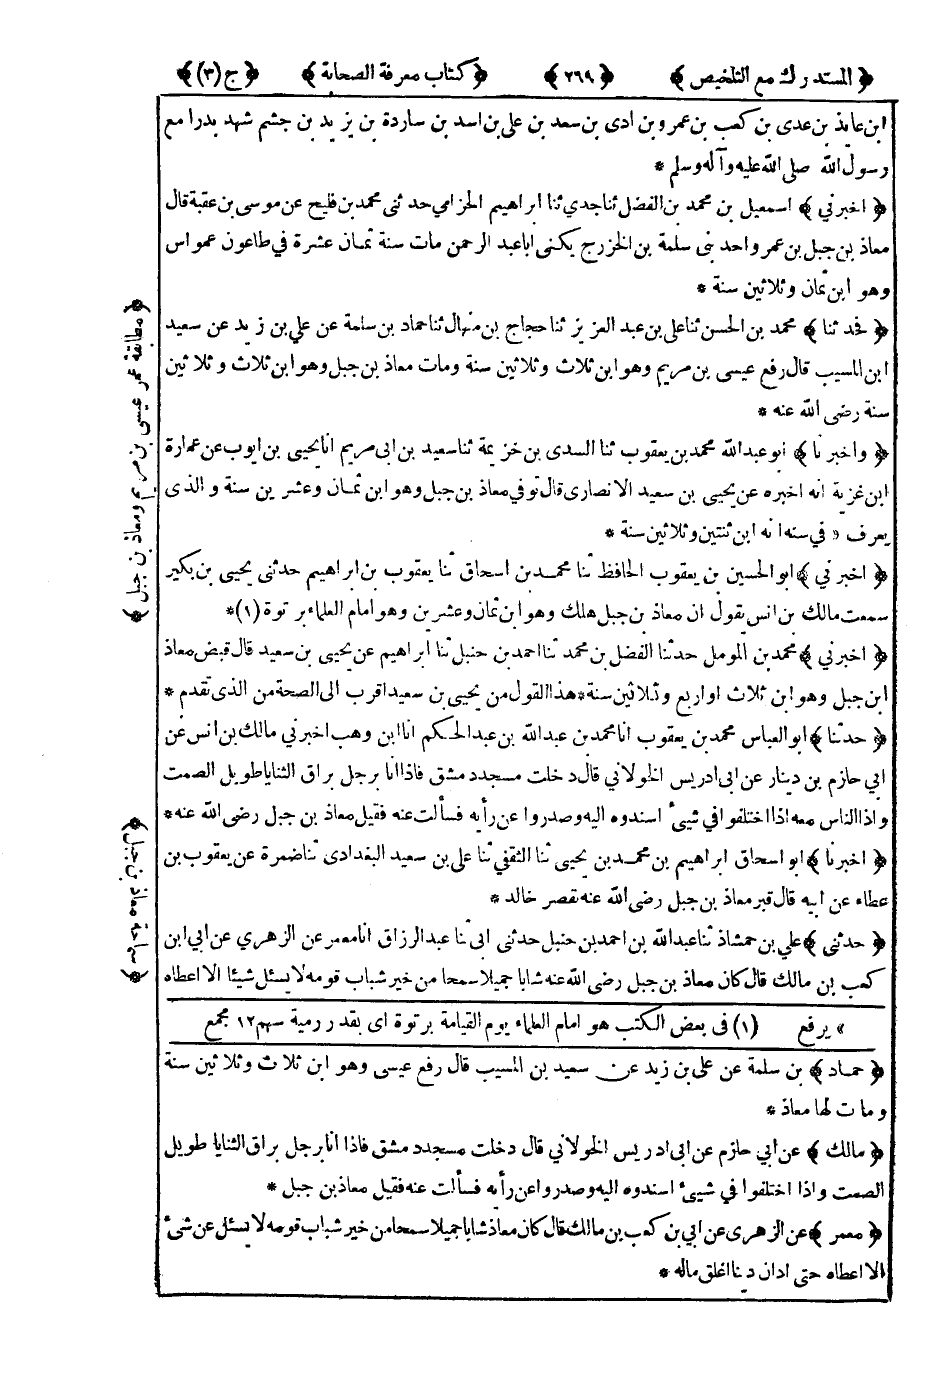 ﴿ المستدرك مع التلخيص ﴾ ﴿ ٢٦٩ ﴾ ﴿ كتاب معرفة الصحابة ﴾ ﴿ ج (٣) ﴾
ابن عايذ بن عدى بن كعب بن عمرو بن ادى بن سعد بن على بن اسد بن ساردة بن يزيد بن جشم شهد بدرا مع
رسول الله صلى الله عليه وآله وسلم *
﴿ اخبرني ﴾ اسمعيل بن محمد بن الفضل ثنا جدي ثنا ابراهيم الحزامي حدثنى محمد بن فليح عن موسى بن عقبة قال
معاذ بن جبل بن عمر واحد بنى سلمة بن الخزرج يكنى ابا عبد الرحمن مات سنة ثمان عشرة في طاعون عمواس
وهو ابن ثمان وثلاثين سنة *
﴿ فحدثنا ﴾ محمد بن الحسن ثنا على بن عبد العزيز ثنا حجاج بن منهال ثنا حماد بن سلمة عن علي بن زيد عن سعيد
ابن المسيب قال رفع عيسى بن مريم وهو ابن ثلاث وثلاثين سنة ومات معاذ بن جبل وهو ابن ثلاث وثلاثين
سنة رضى الله عنه *
﴿ واخبرنا ﴾ ابو عبد الله محمد بن يعقوب ثنا السدى بن خزيمة ثنا سعيد بن ابى مريم انا يحيى بن ايوب عن عمارة
ابن غزية انه اخبره عن يحيى بن سعيد الانصارى قال توفي معاذ بن جبل وهو ابن ثمان وعشرين سنة والذى
يعرف » في سنه انه ابن ثنتين وثلاثين سنة *
﴿ اخبرني ﴾ ابو الحسين بن يعقوب الحافظ ثنا محمد بن اسحاق ثنا يعقوب بن ابراهيم حدثنى يحيى بن بكير
سمعت مالك بن انس يقول ان معاذ بن جبل هلك وهو ابن ثمان وعشرين وهو امام العلماء برتوة (١) *
﴿ اخبرني ﴾ محمد بن المومل حدثنا الفضل بن محمد ثنا احمد بن حنبل ثنا ابراهيم عن يحيى بن سعيد قال قبض معاذ
ابن جبل وهو ابن ثلاث او اربع وثلاثين سنة * هذا القول من يحيى بن سعيد اقرب الى الصحة من الذى تقدم *
﴿ حدثنا ﴾ ابو العباس محمد بن يعقوب انا محمد بن عبد الله بن عبد الحكم انا ابن وهب اخبرني مالك بن انس عن
ابي حازم بن دينار عن ابى ادريس الخولاني قال دخلت مسجد دمشق فاذا انا برجل براق الثنايا طويل الصمت
واذا الناس معه اذا اختلفوا في شيئ اسندوه اليه وصدروا عن رأيه فسألت عنه فقيل معاذ بن جبل رضى الله عنه *
﴿ اخبرنا ﴾ ابو اسحاق ابراهيم بن محمد بن يحيى ثنا الثقفي ثنا على بن سعيد البغدادى ثنا ضمرة عن يعقوب بن
عطاء عن ابيه قال قبر معاذ بن جبل رضى الله عنه نقصر خالد *
﴿ حدثنى ﴾ علي بن حمشاذ ثنا عبد الله بن احمد بن حنبل حدثنى ابى ثنا عبد الرزاق انا معمر عن الزهري عن أبي ابن
كعب بن مالك قال كان معاذ بن جبل رضى الله عنه شابا جميلا سمحا من خير شباب قومه لا يسئل شيئا الا اعطاه
» يرفع (١) فى بعض الكتب هو امام العلماء يوم القيامة برتوة اى بقدر رمية سهم ١٢ مجمع
﴿ حماد ﴾ بن سلمة عن على بن زيد عن سعيد بن المسيب قال رفع عيسى وهو ابن ثلاث وثلاثين سنة
ومات لها معاذ *
﴿ مالك ﴾ عن أبي حازم عن ابى ادريس الخولاني قال دخلت مسجد دمشق فاذا انا برجل براق الثنايا طويل
الصمت واذا اختلفوا في شيئ اسندوه اليه وصدروا عن رأيه فسألت عنه فقيل معاذ بن جبل *
﴿ معمر ﴾ عن الزهرى عن ابي بن كعب بن مالك قال كان معاذ شابا جميلا سمحا من خير شباب قومه لا يسئل عن شئ
الا اعطاه حتى ادان دينا اغلق ماله *
﴿ مطابقة عمر عيسى بن مريم ومعاذ بن جبل ﴾
﴿ معاذ بن جبل ﴾